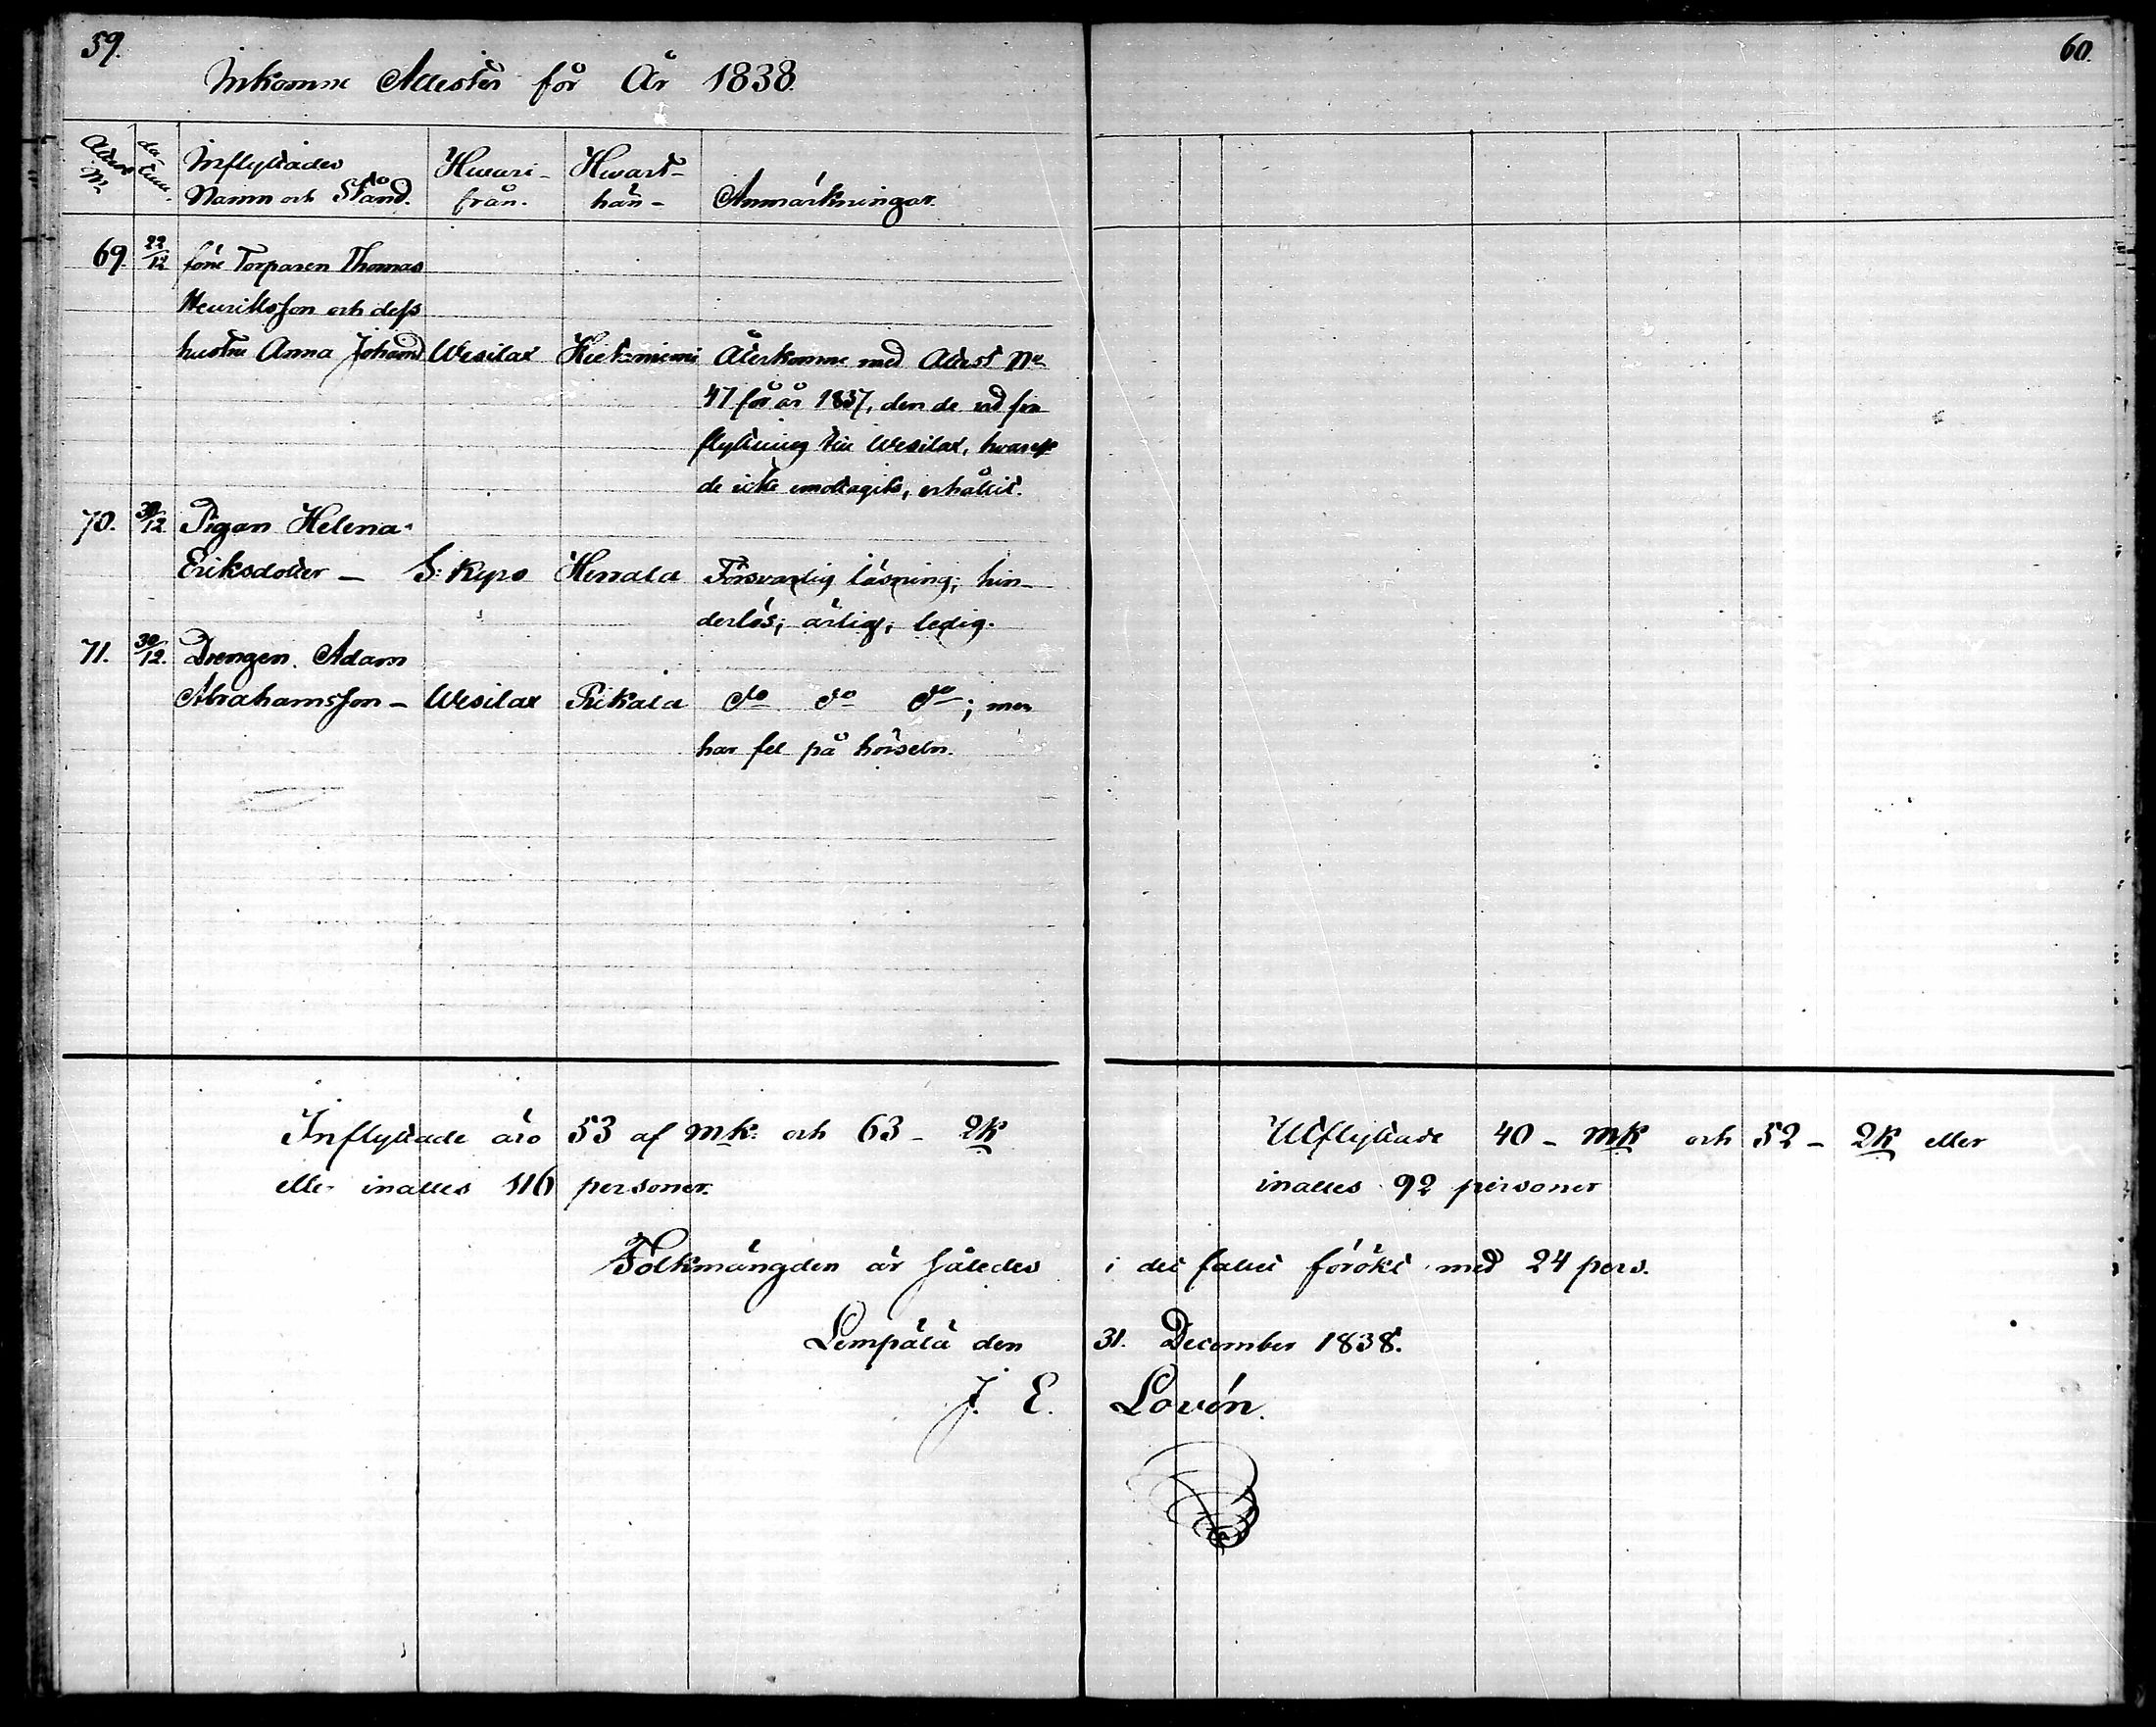 59.
Inkomne Attester för År 1838.
Attest N:o
da-tum.
Inflyttades Namn och Stånd.
Hwari-från.
Hwart-hän-
Anmärkningar.
69. 22/12 förre Torparen Thomas
Henriksson och dess
hustru Anna Johansd. Wesilax Kietzniemi Återkomne med Attest N:o
47 för år 1837, den de vid sin
flyttning till Wesilax, hwarest
de icke emottagits, erhållit.
70. 30/12 Pigan Helena
Eriksdotter – S: Kyro Herrala Försvarlig läsning; hin-
derlös; ärlig; ledig.
71. 30/12. Drengen Adam
Abrahamsson – Wesilax Rikala do do do; men
har fel på hörseln.
Inflyttade äro 53 af mk. och 63 – Qk
eller inalles 116 personer.
60.
Utflyttade 40 – mk och 52 – Qk eller
inalles 92 personer
Folkmängden är således i det fallet förökt med 24 pers.
Lempälä den 31. December 1838.
J. E. Lovén.